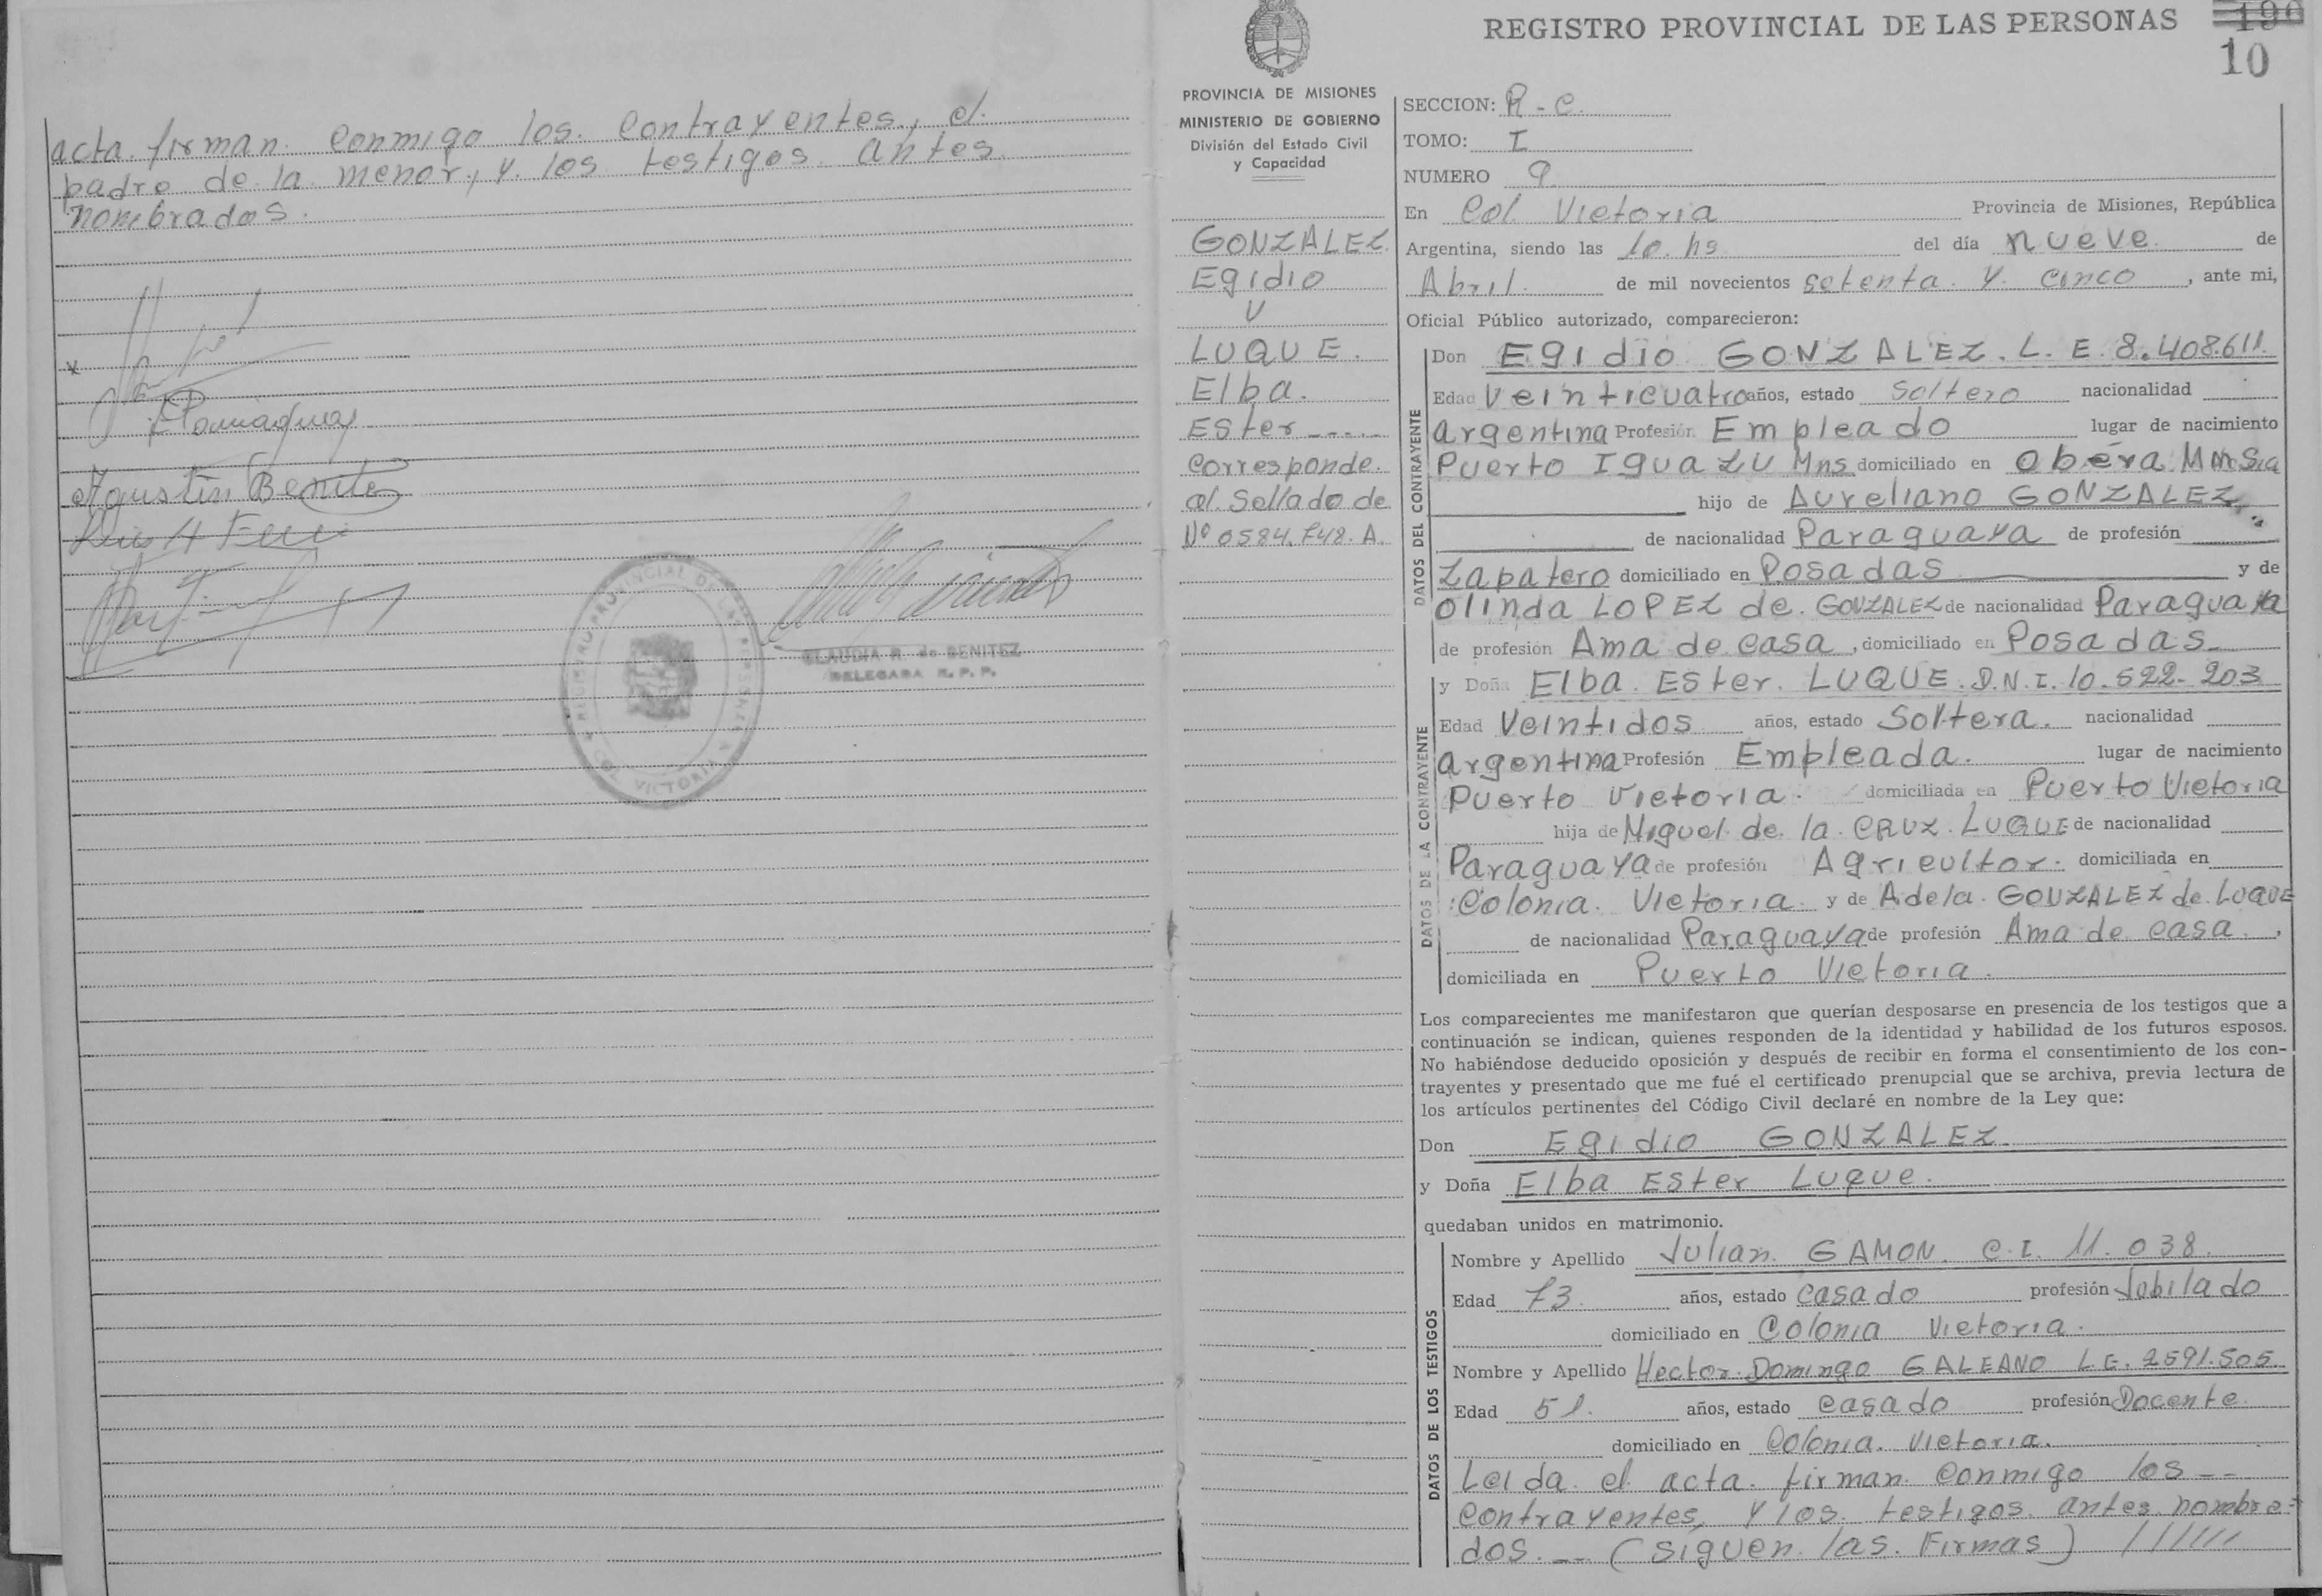 acta. firman. conmigo los. contrayentes, el.
padre de la menor, y los testigos. antes.
nombrados.
Agustin Benitez
REGISTRO PROVINCIAL DE LAS PERSONAS
COL. VICTORIA
CLAUDIA R. de BENITEZ
DELEGADA R. P. P.
REGISTRO PROVINCIAL DE LAS PERSONAS
196
10
PROVINCIA DE MISIONES
MINISTERIO DE GOBIERNO
División del Estado Civil
y Capacidad
GONZALEZ
Egidio
y
LUQUE.
Elba.
Ester -----
Corresponde.
al. Sellado de
Nº 0584.748. A.
SECCION: R-C.
TOMO: I
NUMERO 9
En Col. Victoria Provincia de Misiones, República
Argentina, siendo las 10. hs del día nueve de
Abril. de mil novecientos setenta. y. cinco, ante mi,
Oficial Público autorizado, comparecieron:
DATOS DEL CONTRAYENTE
Don Egidio GONZALEZ. L. E. 8.408.611.
Edad Veinticuatro años, estado soltero nacionalidad
argentina Profesión Empleado lugar de nacimiento
Puerto IguaZU Mns domiciliado en Obera
hijo de Aureliano GONZALEZ
de nacionalidad Paraguaya de profesión
Zapatero domiciliado en Posadas y de
Olinda LOPEZ de. GONZALEZ de nacionalidad Paraguaya
de profesión Ama de casa, domiciliado en Posadas
DATOS DE LA CONTRAYENTE
y Doña Elba. Ester. LUQUE. D.N.I. 10.522-203
Edad Veintidos años, estado Soltera. nacionalidad
argentina Profesión Empleada. lugar de nacimiento
Puerto Victoria. domiciliada en Puerto Victoria
hija de Miguel de. la. CRUZ. LUQUE de nacionalidad
Paraguaya de profesión Agricultor. domiciliada en
Colonia. Victoria. y de Adela. GONZALEZ de. LUQUE
de nacionalidad Paraguaya de profesión Ama de casa.,
domiciliada en Puerto Victoria.
Los comparecientes me manifestaron que querían desposarse en presencia de los testigos que a
continuación se indican, quienes responden de la identidad y habilidad de los futuros esposos.
No habiéndose deducido oposición y después de recibir en forma el consentimiento de los con-
trayentes y presentado que me fué el certificado prenupcial que se archiva, previa lectura de
los artículos pertinentes del Código Civil declaré en nombre de la Ley que:
Don Egidio GONZALEZ
y Doña Elba Ester Luque.
quedaban unidos en matrimonio.
DATOS DE LOS TESTIGOS
Nombre y Apellido Julian. GAMON. C.I. 11.038.
Edad 73. años, estado casado profesión Jubilado
domiciliado en Colonia Victoria.
Nombre y Apellido Hector. Domingo GALEANO L.E. 2591.505.
Edad 51. años, estado casado profesión Docente.
domiciliado en Colonia. Victoria.
Leida. el acta. firman. conmigo los --
contrayentes, y los. testigos. antes. nombra-
dos. -- (siguen. las. Firmas) //////